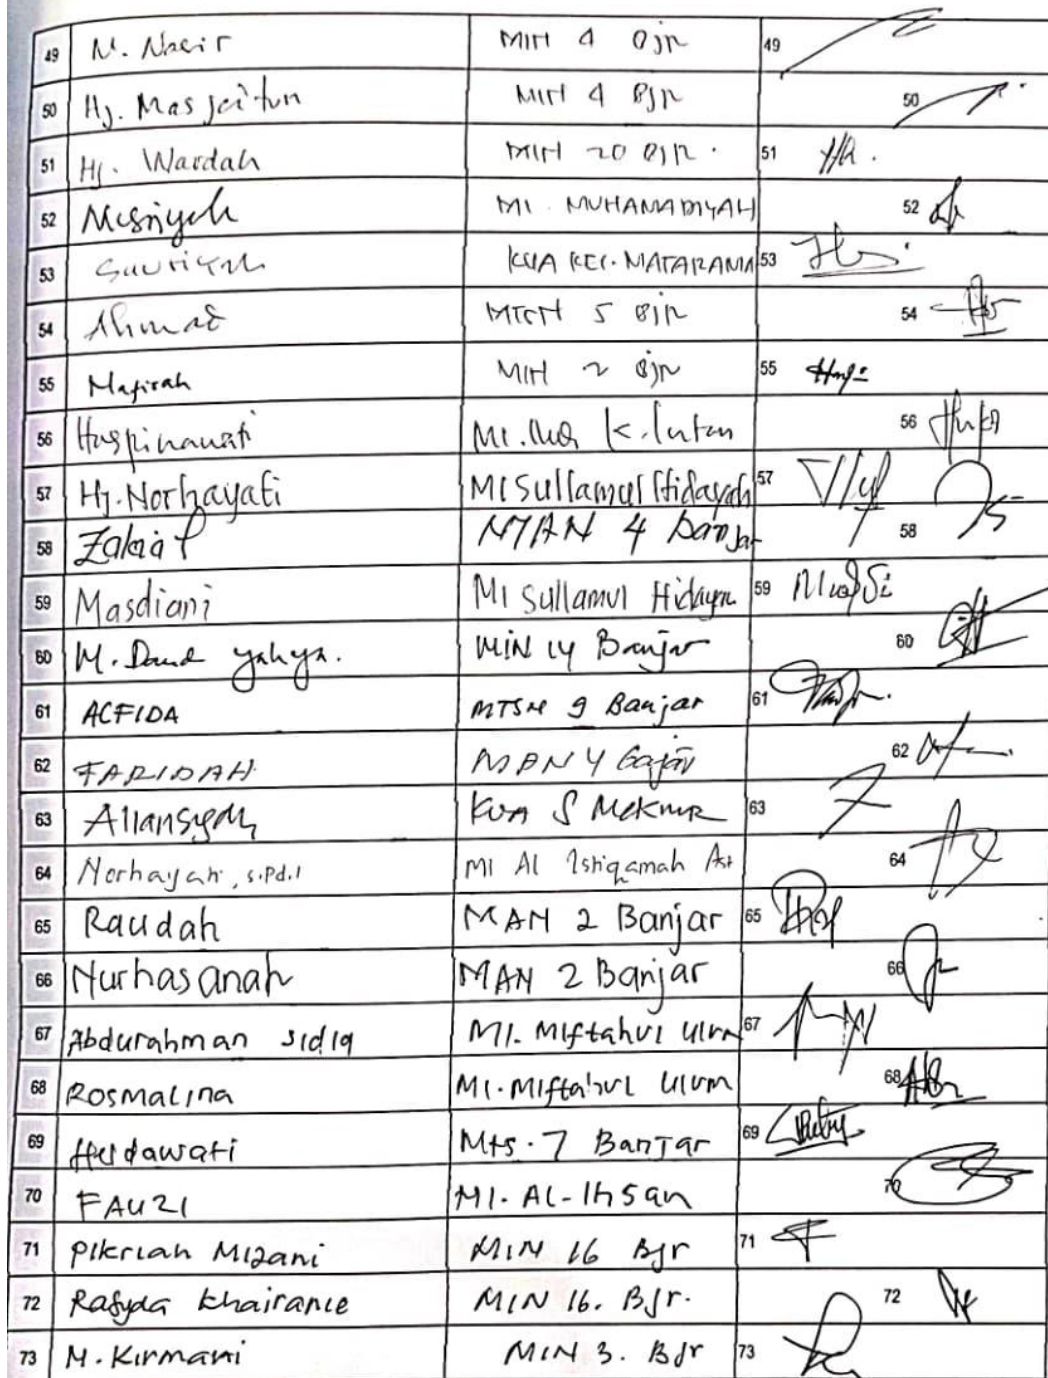 49 M. Nasir MIN 4 Bjr 49
50 Hj. Masjaitun MIN 4 Bjr 50
51 Hj. Wardah MIN 20 Bjr. 51
52 Misriyah MI. MUHAMADIYAH 52
53 KUA KEC. MATARAMAN 53
54 Ahmad MTSN 5 Bjr 54
55 Mafirah MIN 2 Bjr 55
56 Huspinawati MI. K. Intan 56
57 Hj. Norhayati MI Sullamul Hidayah 57
58 Zakiat 4 Banjar 58
59 Masdiani MI Sullamul Hidayh 59
60 M. Daud yahya. MIN 14 Banjar 60
61 ACFIDA MTSN 9 Banjar 61
62 FARIDAH MAN 4 62
63 KUA S 63
64 Norhayah, S.Pd.I MI Al Istiqamah Ast 64
65 Raudah MAN 2 Banjar 65
66 Nurhasanah MAN 2 Banjar 66
67 Abdurahman sidiq MI. Miftahul Ulum 67
68 ROSMALINA MI. Miftahul Ulum 68
69 Herdawati Mts. 7 Banjar 69
70 FAUZI MI. AL-Ihsan 70
71 Pikriah Mizani MIN 16 Bjr 71
72 Rasyda Khairanie MIN 16. Bjr. 72
73 M. Kirmani MIN 3. Bjr 73